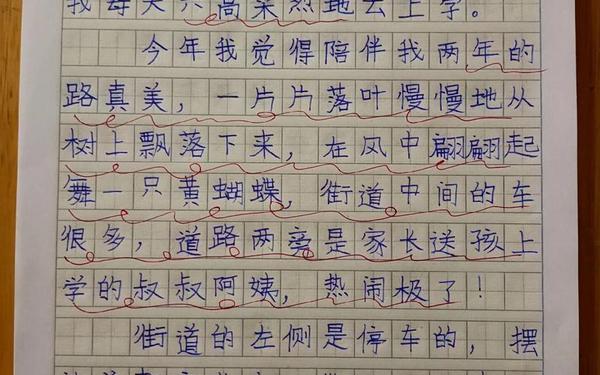 我每天只高采烈地去上学。
今年我觉得陪伴我两年的
路真美，一片片落叶慢慢地从
树上飘落下来，在风中翩翩起
舞一只黄蝴蝶，街道中间的车
很多，道路两旁是家长送孩上
学的叔叔阿姨，热闹极了！
街道的左侧是停车的，摆